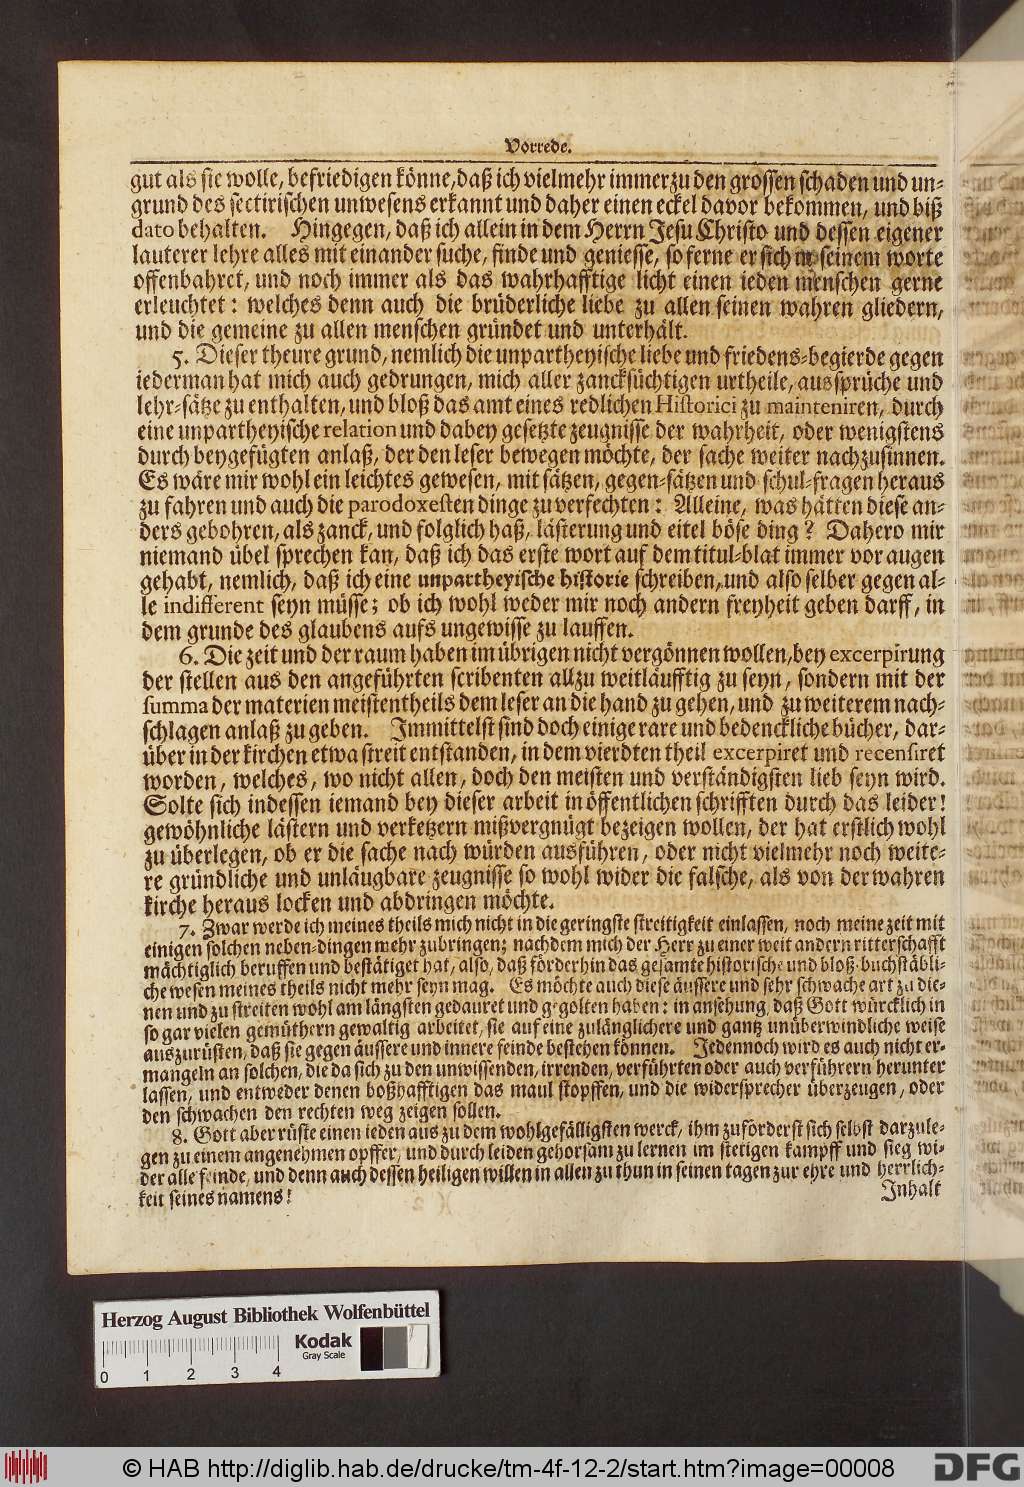 Vorrede.
gut als sie wolle, befriedigen könne, daß ich vielmehr immerzu den grossen schaden und un-
grund des sectirischen unwesens erkannt und daher einen eckel davor bekommen, und biß
dato behalten. Hingegen, daß ich allein in dem Herrn Jesu Christo und dessen eigener
lauterer lehre alles mit einander suche, finde und geniesse, so ferne er sich in seinem worte
offenbahret, und noch immer als das wahrhafftige licht einen ieden menschen gerne
erleuchtet: welches denn auch die brüderliche liebe zu allen seinen wahren gliedern,
und die gemeine zu allen menschen gründet und unterhält.
5. Dieser theure grund, nemlich die unpartheyische liebe und friedens-begierde gegen
iederman hat mich auch gedrungen, mich aller zancksüchtigen urtheile, aussprüche und
lehr-sätze zu enthalten, und bloß das amt eines redlichen Historici zu mainteniren, durch
eine unpartheyische relation und dabey gesetzte zeugnisse der wahrheit, oder wenigstens
durch beygefügten anlaß, der den leser bewegen möchte, der sache weiter nachzusinnen.
Es wäre mir wohl ein leichtes gewesen, mit sätzen, gegen-sätzen und schul-fragen heraus
zu fahren und auch die parodoxesten dinge zu verfechten: Alleine, was hätten diese an-
ders gebohren, als zanck, und folglich haß, lästerung und eitel böse ding? Dahero mir
niemand übel sprechen kan, daß ich das erste wort auf dem titul-blat immer vor augen
gehabt, nemlich, daß ich eine unpartheyische historie schreiben, und also selber gegen al-
le indifferent seyn müsse; ob ich wohl weder mir noch andern freyheit geben darff, in
dem grunde des glaubens aufs ungewisse zu lauffen.
6. Die zeit und der raum haben im übrigen nicht vergönnen wollen, bey excerpirung
der stellen aus den angeführten scribenten allzu weitläufftig zu seyn, sondern mit der
summa der materien meistentheils dem leser an die hand zu gehen, und zu weiterem nach-
schlagen anlaß zu geben. Immittelst sind doch einige rare und bedenckliche bücher, dar-
über in der kirchen etwa streit entstanden, in dem vierdten theil excerpiret und recensiret
worden, welches, wo nicht allen, doch den meisten und verständigsten lieb seyn wird.
Solte sich indessen iemand bey dieser arbeit in öffentlichen schrifften durch das leider!
gewöhnliche lästern und verketzern mißvergnügt bezeigen wollen, der hat erstlich wohl
zu überlegen, ob er die sache nach würden ausführen, oder nicht vielmehr noch weite-
re gründliche und unläugbare zeugnisse so wohl wider die falsche, als von der wahren
kirche heraus locken und abdringen möchte.
7. Zwar werde ich meines theils mich nicht in die geringste streitigkeit einlassen, noch meine zeit mit
einigen solchen neben-dingen mehr zubringen; nachdem mich der Herr zu einer weit andern ritterschafft
mächtiglich beruffen und bestätiget hat, also, daß förderhin das gesamte historische und bloß-buchstäbli-
che wesen meines theils nicht mehr seyn mag. Es möchte auch diese äussere und sehr schwache art zu die-
nen und zu streiten wohl am längsten gedauret und gegolten haben: in ansehung, daß Gott würcklich in
so gar vielen gemüthern gewaltig arbeitet, sie auf eine zulänglichere und gantz unüberwindliche weise
auszurüsten, daß sie gegen äussere und innere feinde bestehen können. Jedennoch wird es auch nicht er-
mangeln an solchen, die da sich zu den unwissenden, irrenden, verführten oder auch verführern herunter
lassen, und entweder denen boßhafftigen das maul stopffen, und die widersprecher überzeugen, oder
den schwachen den rechten weg zeigen sollen.
8. Gott aber rüste einen ieden aus zu dem wohlgefälligsten werck, ihm zuförderst sich selbst darzule-
gen zu einem angenehmen opffer, und durch leiden gehorsam zu lernen im stetigen kampff und sieg wi-
der alle feinde, und denn auch dessen heiligen willen in allen zu thun in seinen tagen zur ehre und herrlich-
keit seines namens!
Inhalt
Herzog August Bibliothek Wolfenbüttel
Kodak
Gray Scale
0 1 2 3 4
© HAB http://diglib.hab.de/drucke/tm-4f-12-2/start.htm?image=00008
DFG